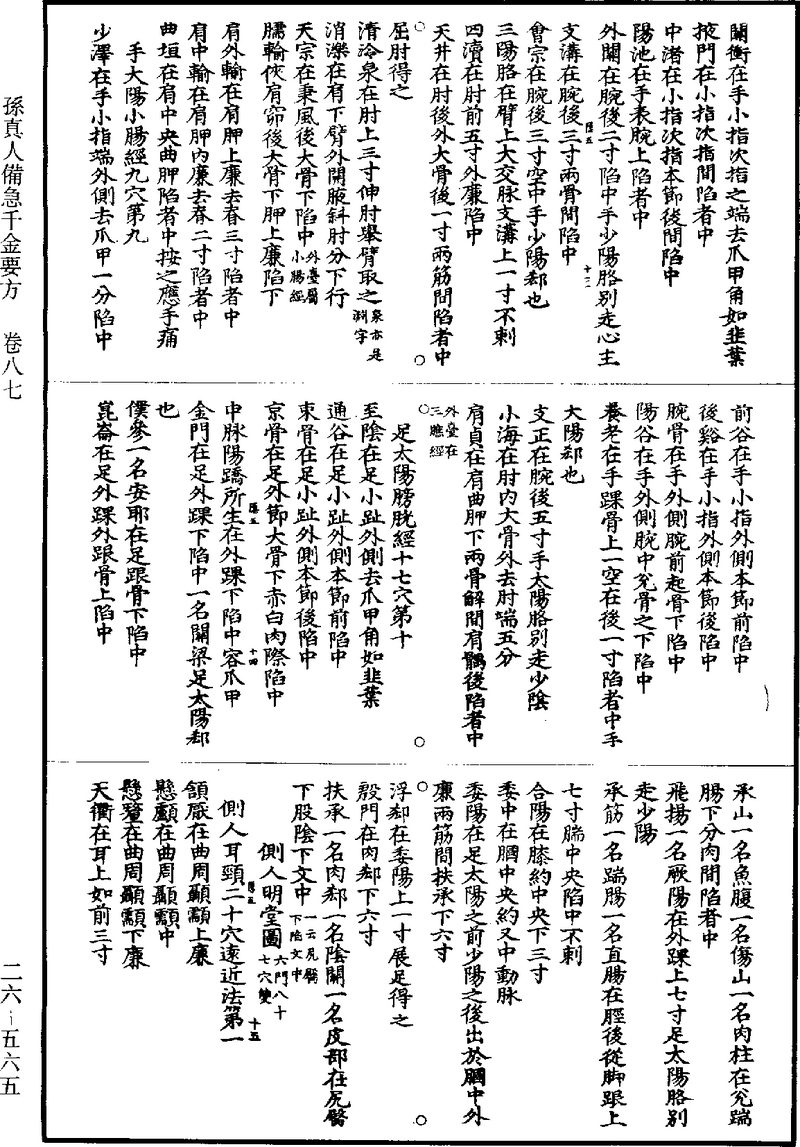 關衝在手小指次指之端去爪甲角如韭葉
掖門在小指次指間陷者中
中渚在小指次指本節後間陷中
陽池在手表腕上陷者中
外關在腕後二寸陷中手少陽胳別走心主
支溝在腕後三寸兩骨間陷中
會宗在腕後三寸空中手少陽郄也
三陽胳在臂上大交脉支溝上一寸不刺
四瀆在肘前五寸外廉陷中
天井在肘後外大骨後一寸兩筋間陷者中
屈肘得之
清泠泉在肘上三寸伸肘舉臂取之泉亦是淵字
消濼在肩下臂外開腋斜肘分下行
天宗在秉風後大骨下陷中外臺屬小腸經
臑輸俠肩窌後大骨下胛上廉陷下
肩外輸在肩胛上廉去脊三寸陷者中
肩中輸在肩胛內廉去脊二寸陷者中
曲垣在肩中央曲胛陷者中按之應手痛
手太陽小腸經九穴第九
少澤在手小指端外側去爪甲一分陷中
前谷在手小指外側本節前陷中
後谿在手小指外側本節後陷中
腕骨在手外側腕前起骨下陷中
陽谷在手外側腕中兊骨之下陷中
養老在手踝骨上一空在後一寸陷者中手
太陽郄也
支正在腕後五寸手太陽胳別走少陰
小海在肘內大骨外去肘端五分
肩貞在肩曲胛下兩骨解間肩髃後陷者中
外臺在三膲經
足太陽膀胱經十七穴第十
至陰在足小趾外側去爪甲角如韭葉
通谷在足小趾外側本節前陷中
束骨在足小趾外側本節後陷中
京骨在足外節大骨下赤白肉際陷中
中脉陽蹻所生在外踝下陷中容爪甲
金門在足外踝下陷中一名關梁足太陽郄
也
僕參一名安耶在足跟骨下陷中
崑崙在足外踝外跟骨上陷中
承山一名魚腹一名傷山一名肉柱在兊踹
腸下分肉間陷者中
飛揚一名厥陽在外踝上七寸足太陽胳別
走少陽
承筋一名踹腸一名直腸在脛後從脚跟上
七寸腨中央陷中不刺
合陽在膝約中央下三寸
委中在膕中央約文中動脉
委陽在足太陽之前少陽之後出於膕中外
廉兩筋間扶承下六寸
浮郄在委陽上一寸展足得之
殷門在肉郄下六寸
扶承一名肉郄一名陰關一名皮部在尻臀
下股陰下文中一云尻臀下陷文中
側人明堂圖六門八十七穴雙
側人耳頸二十穴遠近法第一
頷厭在曲周顳顬上廉
懸顱在曲周顳顬中
懸釐在曲周顳顬下廉
天衢在耳上如前三寸
孫真人備急千金要方　卷八七
二六－五六五